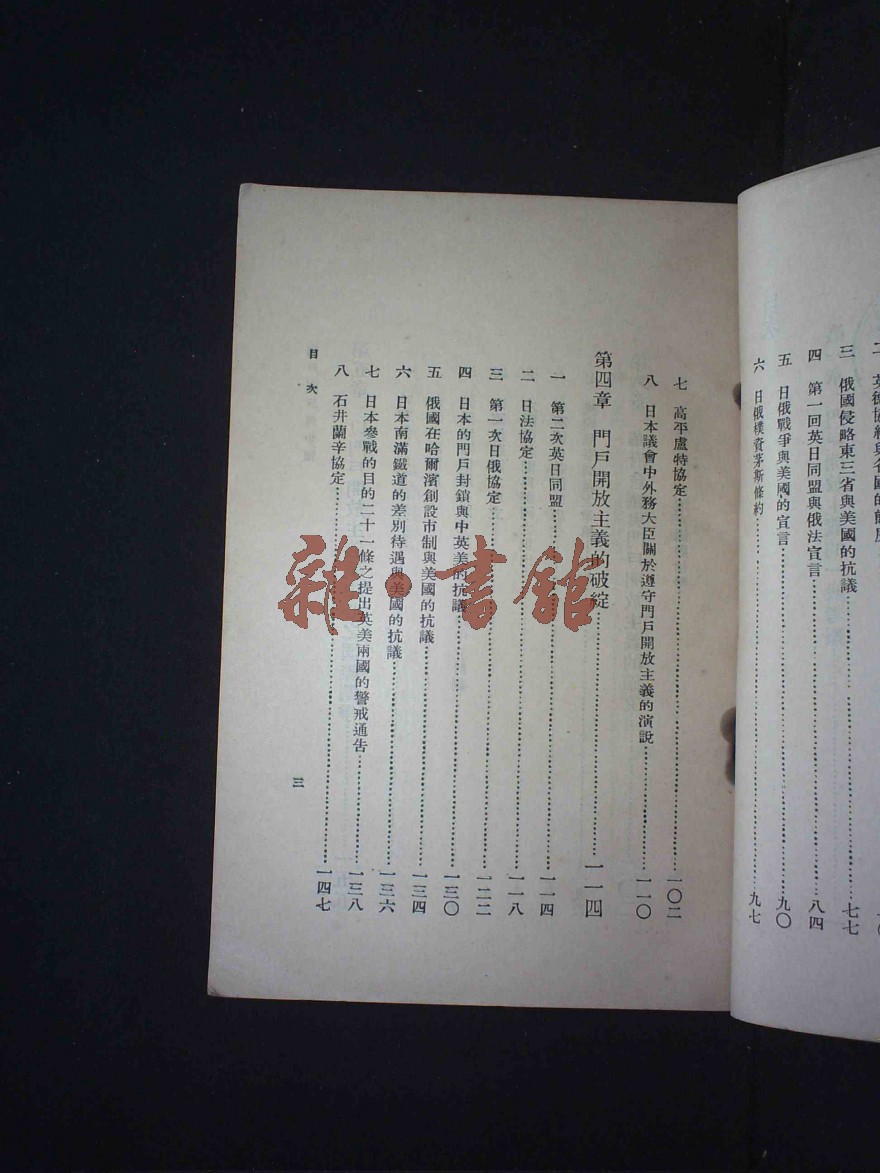 三　俄國侵略東三省與美國的抗議……七七
四　第一回英日同盟與俄法宣言……八四
五　日俄戰爭與美國的宣言……九〇
六　日俄樸資茅斯條約……九七
七　高平盧特協定……一〇二
八　日本議會中外務大臣關於遵守門戶開放主義的演說……一一〇
第四章　門戶開放主義的破綻……一一四
一　第二次英日同盟……一一四
二　日法協定……一一八
三　第一次日俄協定……一二二
四　日本的門戶封鎖與中英美的抗議……一三〇
五　俄國在哈爾濱創設市制與美國的抗議……一三四
六　日本南滿鐵道的差別待遇與美國的抗議……一三六
七　日本參戰的目的二十一條之提出英美兩國的警戒通告……一三八
八　石井蘭辛協定……一四七
目次
三
雜·書館